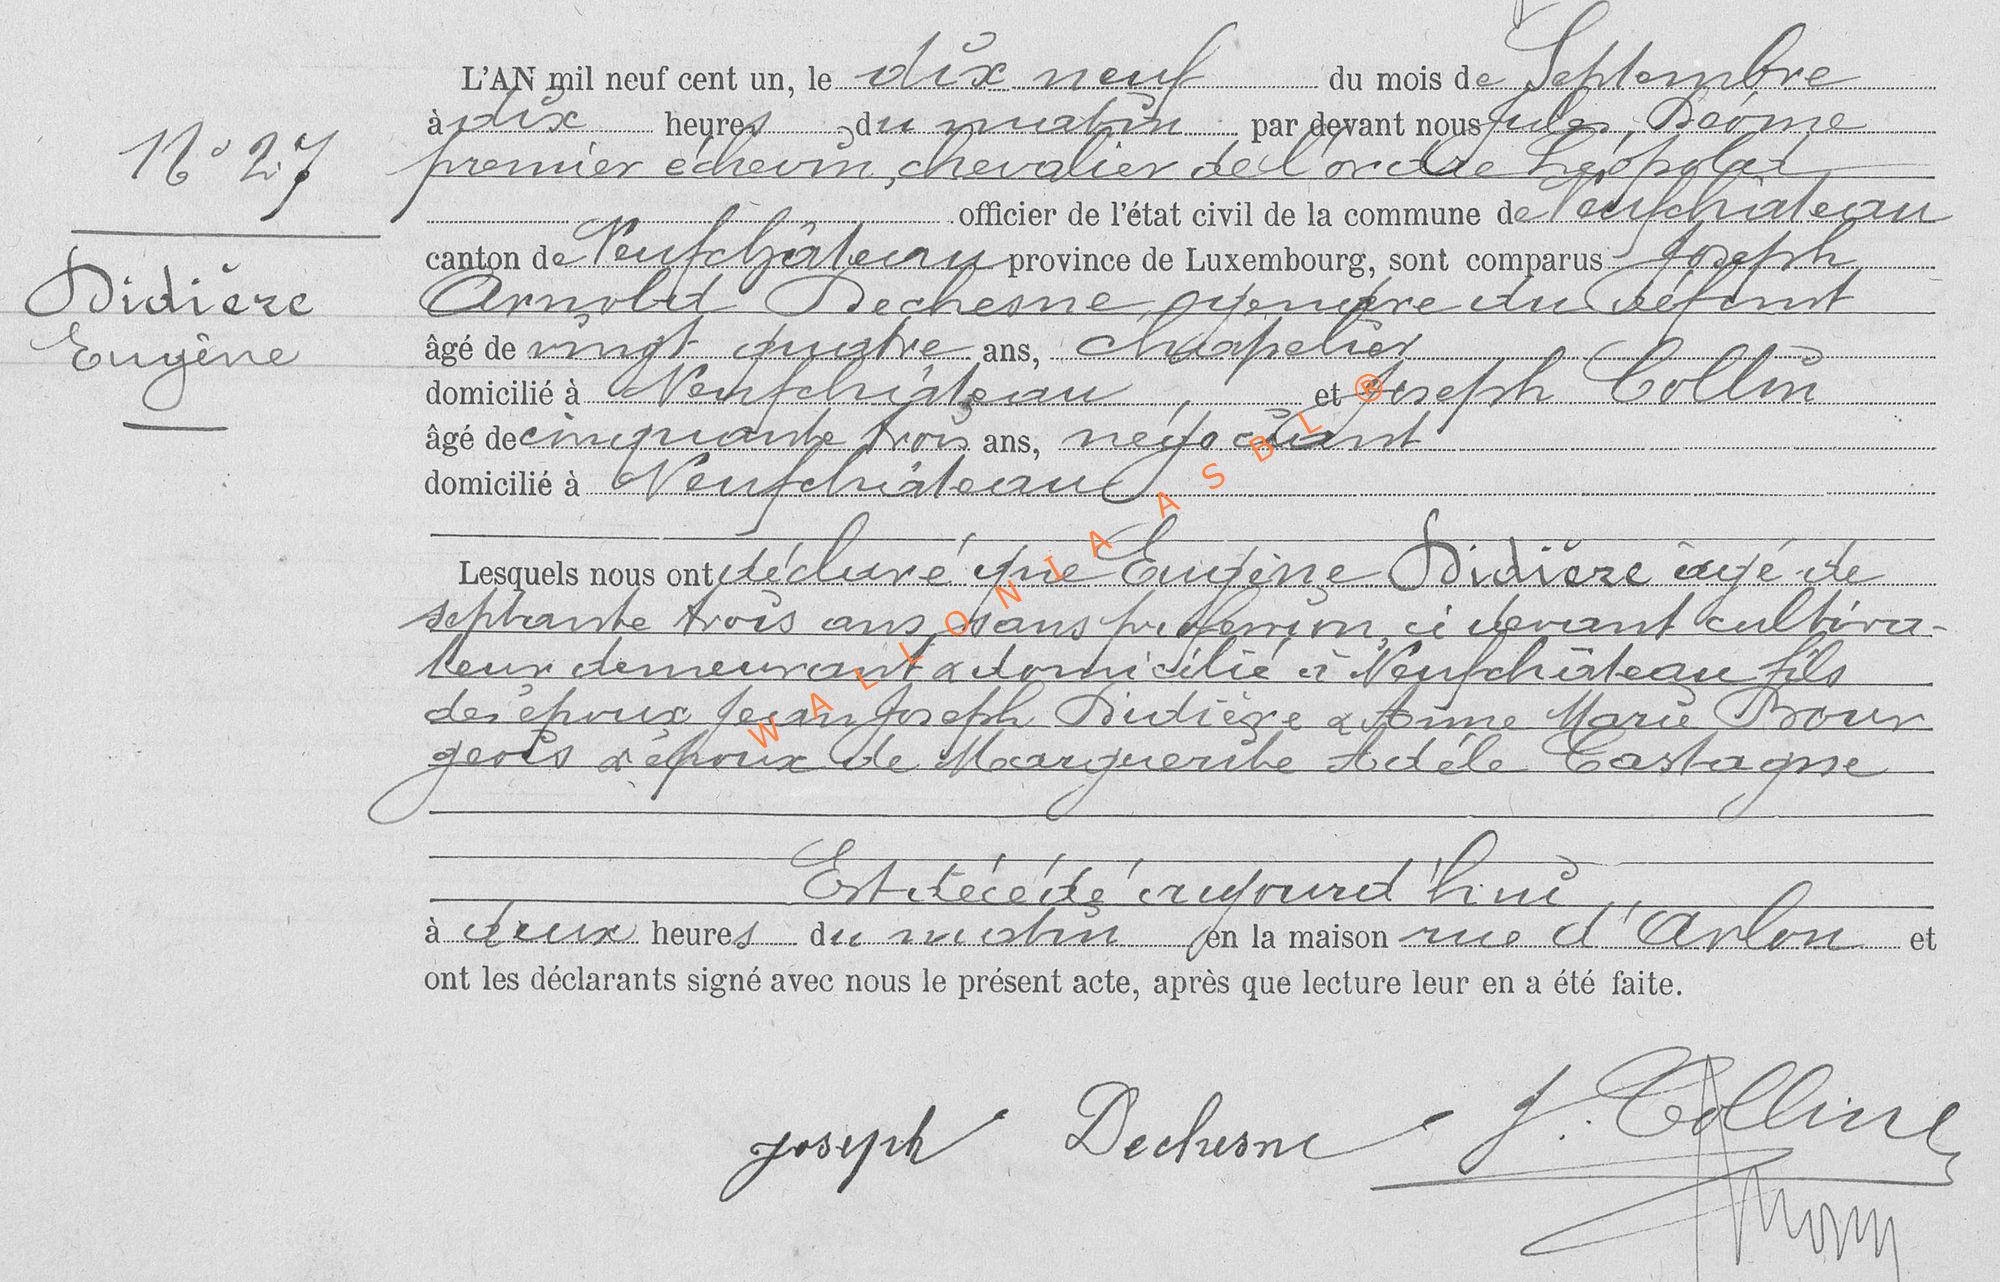 L'AN mil neuf cent un, le dix neuf du mois de Septembre
à dix heures du matin par devant nous Jules Déome
N° 27 premier échevin, chevalier de l'ordre Léopold
officier de l'état civil de la commune de Neufchâteau
canton de Neufchâteau province de Luxembourg, sont comparus Joseph
Didière Arnold Dechesne, gendre du défunt
Eugène âgé de vingt quatre ans, chapelier
domicilié à Neufchâteau, et Joseph Collin
âgé de cinquante trois ans, négociant
domicilié à Neufchâteau
Lesquels nous ont déclaré que Eugène Didière âgé de
septante trois ans, sans profession, ci devant cultiva-
teur demeurant & domicilié à Neufchâteau fils
des époux Jean Joseph Didière & Anne Marie Bour
geois & époux de Marguerite Adèle Castagne
Est décédé aujourd'hui
à deux heures du matin en la maison rue d'Arlon et
ont les déclarants signé avec nous le présent acte, après que lecture leur en a été faite.
Joseph Dechesne J. Collin
WALLONIA ASBL ®